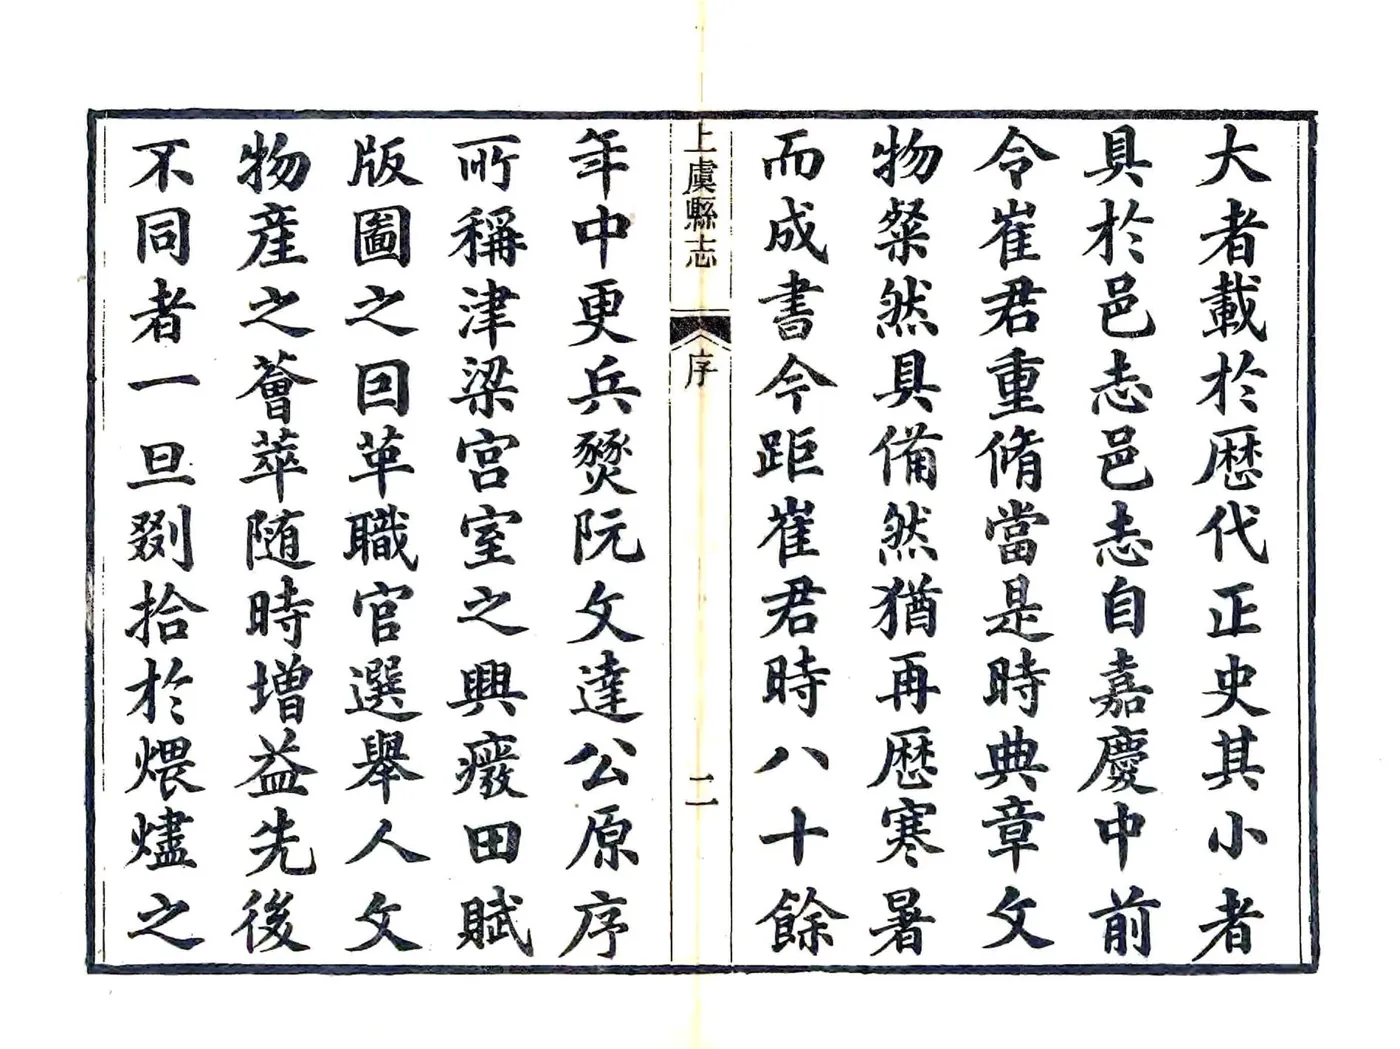 大者載於歴代正史其小者
具於邑志邑志自嘉慶中前
令崔君重脩當是時典章文
物粲然具備然猶再歴寒暑
而成書今距崔君時八十餘
上虞縣志
序
二
年中更兵燹阮文達公原序
所稱津梁宫室之興癈田賦
版圖之回革職官選舉人文
物産之薈萃随時增益先後
不同者一旦剟拾於煨燼之